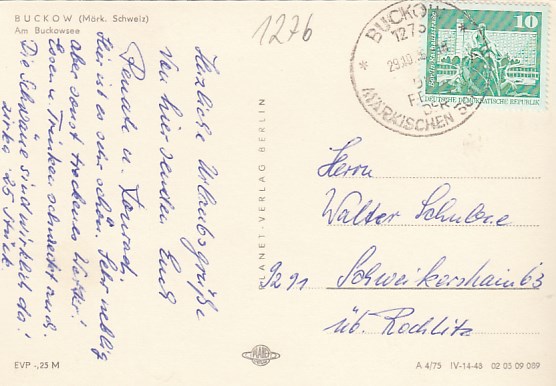 BUCKOW (Märk. Schweiz)
Am Buckowsee
1276
Herzliche Urlaubsgrüße
von hier senden Euch
Renate u. Konrad.
Hier ist es sehr schön. Sehr neblig
aber sonst trockenes Wetter!
Essen u. Trinken schmeckt auch.
Die Schwäne sind wirklich da!
zirka 25 Stück.
PLANET-VERLAG BERLIN
BUCKOW
1276
MÄRKISCHEN
10
DEUTSCHE DEMOKRATISCHE REPUBLIK
Herrn
Walter Schulze
9291 Schweikershain 63
üb. Rochlitz
EVP -,25 M
PLANET
A 4/75 IV-14-48 02 05 09 089